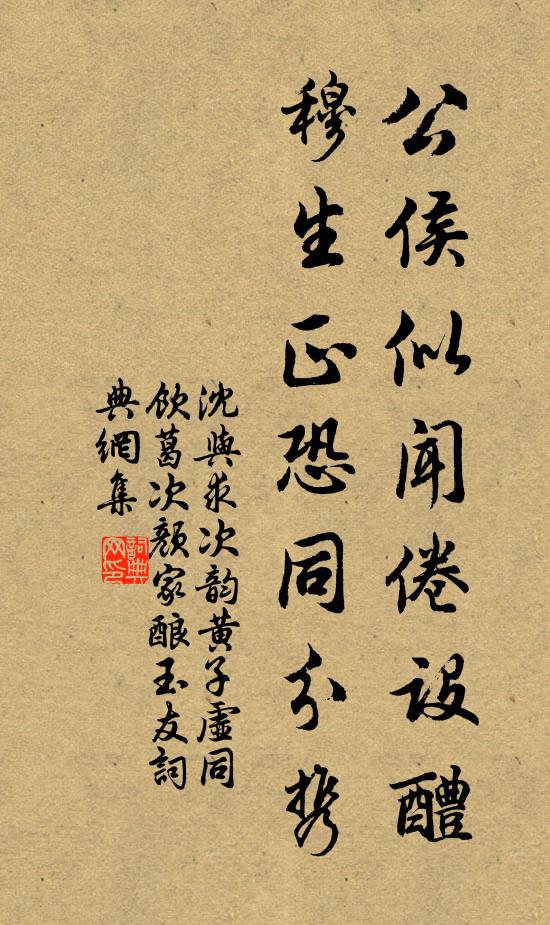 公侯似闻倦设醴
穆生正恐同分携
沈與求次韵黄子虚同
饮葛次颜家酿玉友詞
典網集
詞典网印